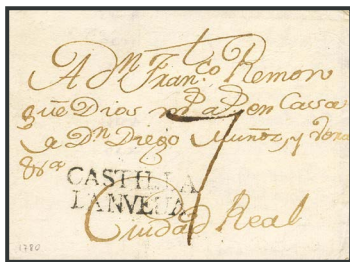 A Dn Franco Remon
que Dios ms as en Casa
a Dn Diego Muñoz, y Vera
7
CASTILLA
LANVEUA
Ciudad Real
1780